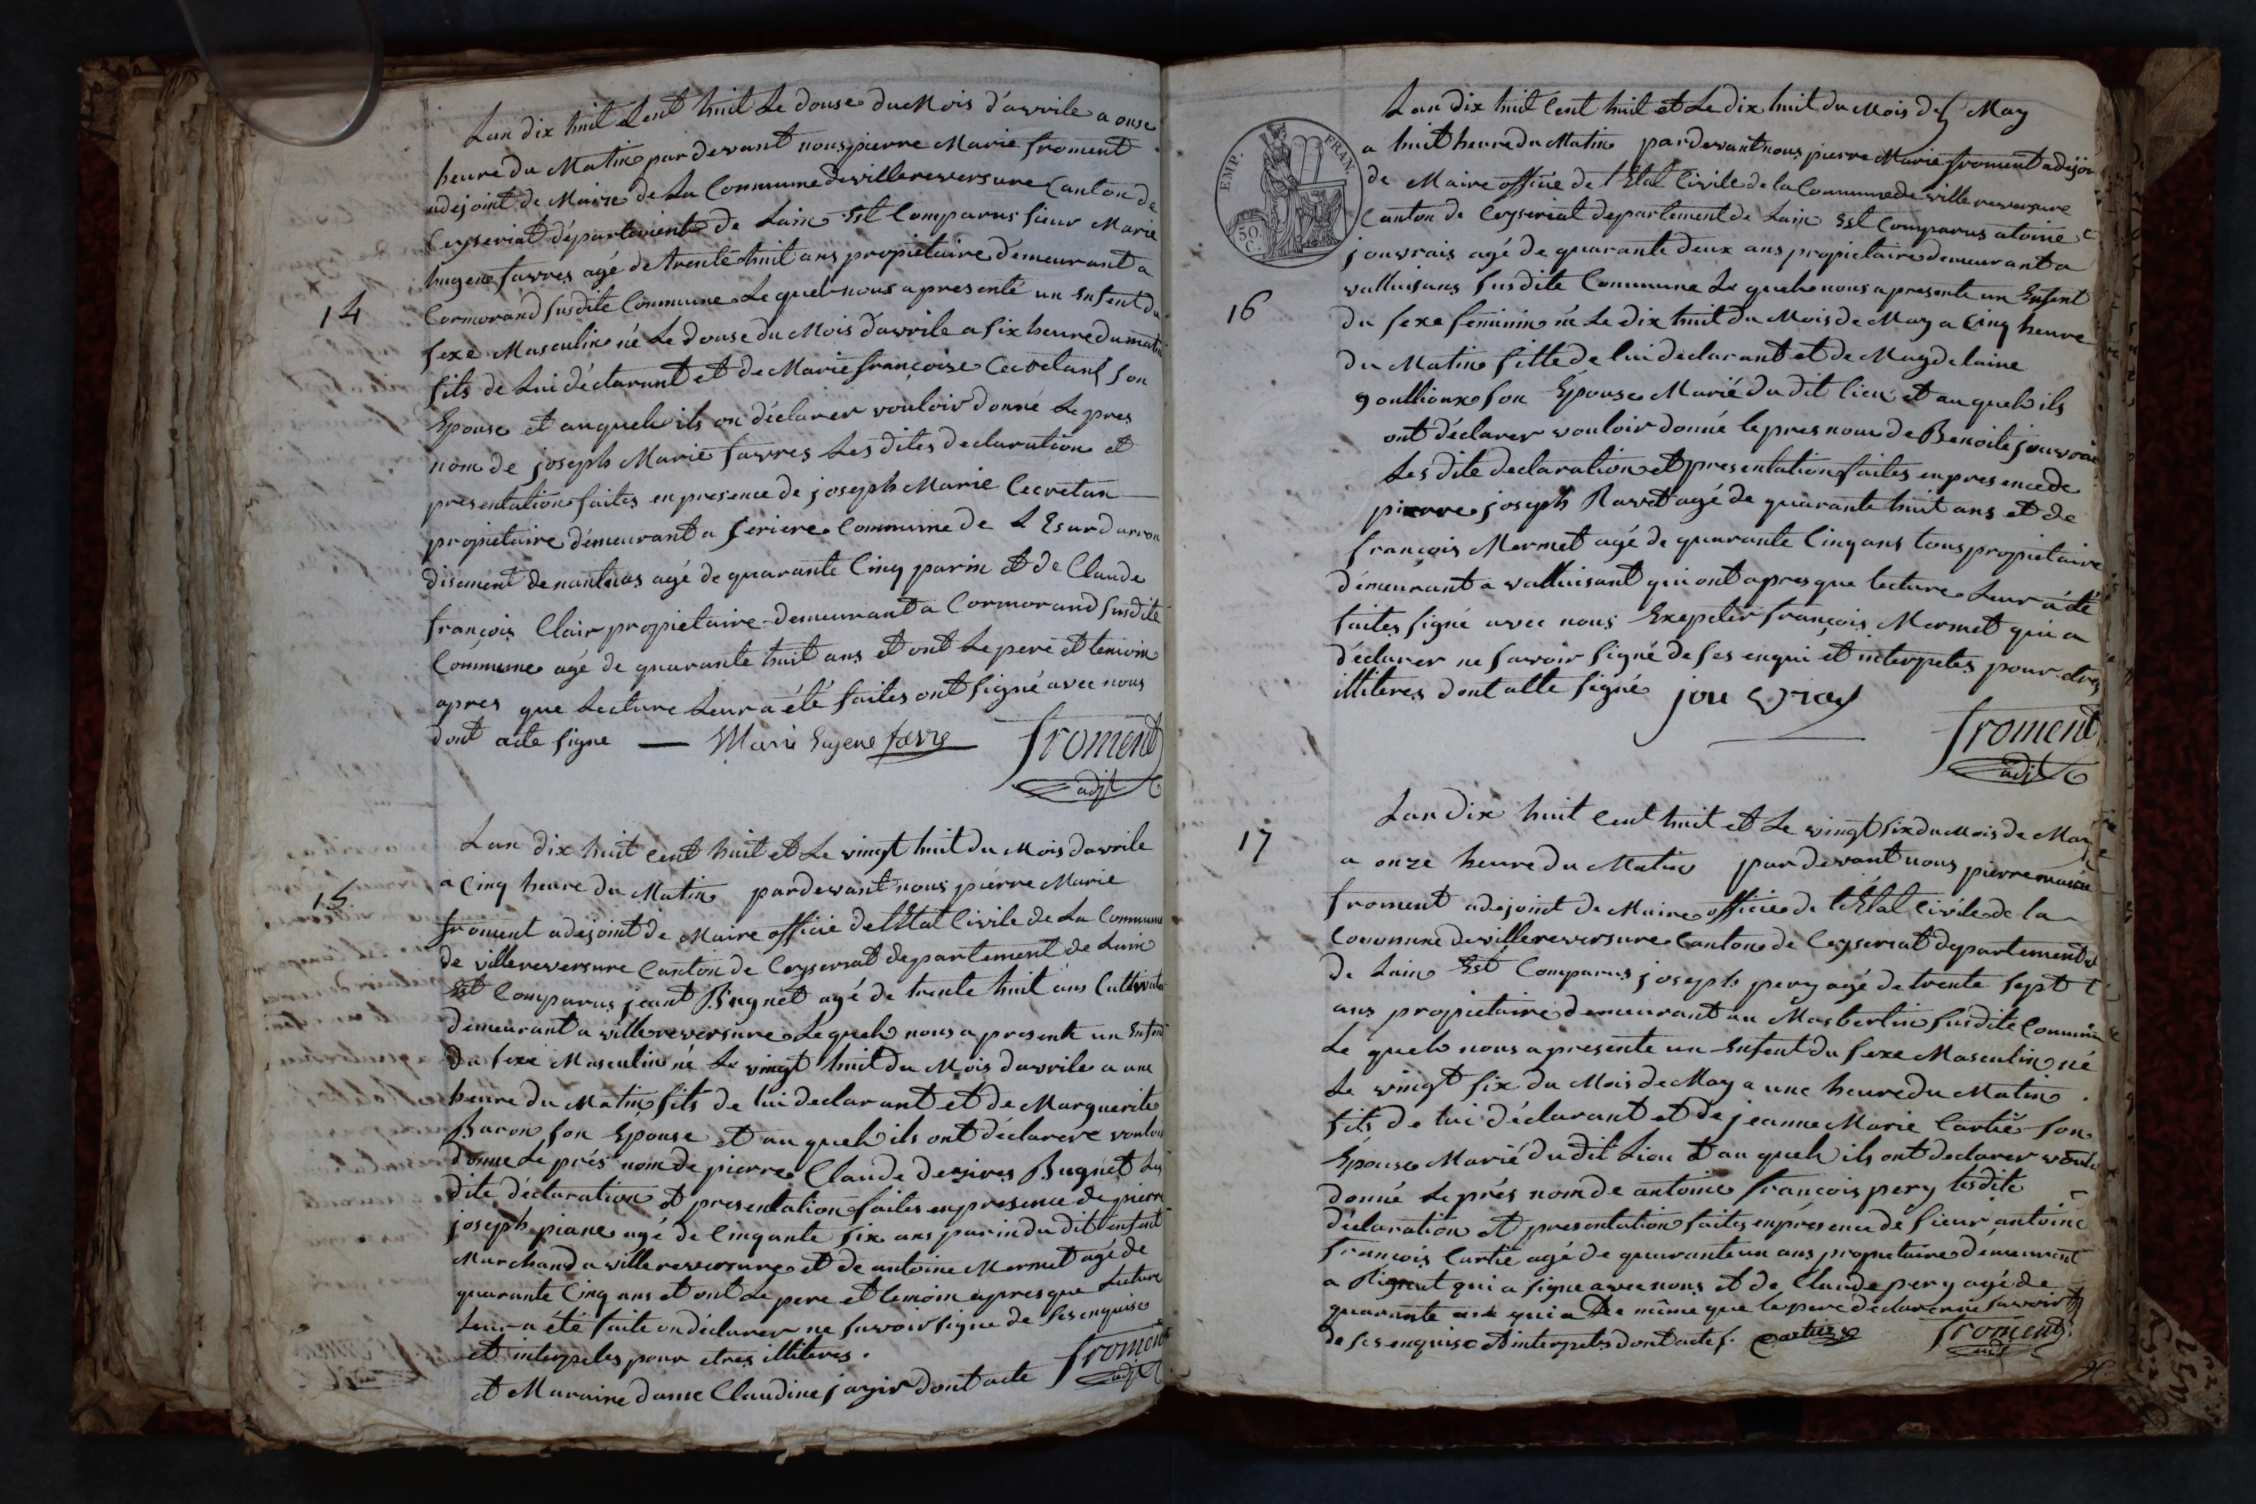 Lan dix huit Cent huit Le douse du Mois d'avrile a onse
heure du Matin par devant nous pierre Marie froment
adejoint de Maire de La Commune de villereversure Canton de
Ceyseriat département de Lain Est Comparus sieur Marie
hugene favres agé de trente huit ans propietaire démeurant a
14
Cormorand susdite Commune Le quel nous a presenté un Enfent du
sexe Masculin né Le douse du Mois davrile a six heure du matin
fils de Lui déclarant et de Marie françoise Cecretant son
Epouse et au quele ils on déclarer vouloir donné Le pres
nom de joseph Marie favres Les dites declaration et
presentation faites en presence de joseph Marie Cecretan
propietaire démeurant a feriere Commune de
disement de nantuas agé de quarante Cinq parin et de Claude
françois Clair propietaire demeurant a Cormorand susdite
Commune agé de quarante huit ans et ont Le pere et temoin
apres que Lecture Leur a été faites ont signé avec nous
dont acte signe — Marie Eugene favre froment
adjt
Lan dix huit cent huit et Le vingt huit du Mois davrile
15
a Cinq heure du Matin pardevant nous pierre Marie
froment adejoint de Maire officié de lEtat Civile de La Commune
de villereversure Canton de Ceyseriat departement de Lain
Est Comparus jeant Bugnet agé de trente huit ans Cultivateur
demeurant a villereversure Le quele nous a presente un Enfent
du sexe Masculin né Le vingt huit du Mois davrile a une
heure du Matin fils de lui declarant et de Marguerite
Baron son Epouse et au quele ils ont déclarere vouloir
donne Le prés nom de pierre Claude desires Bugnet Les
dite déclaration et presentation faites en presence de pierre
joseph piane agé de Cinqante six ans parin du dit enfent
Marchand a villereversure et de antoine Mermet agé de
quarante Cinq ans et ont Le pere et temoin apres que Lecture
Leur a été faite on déclarer ne savoir signe de ses enquise
et interpeles pour etres illiteres.
et Maraine dame Claudine jayir dont acte froment
adjt
Lan dix huit Cent huit et Le dix huit du Mois de May
EMP. FRAN.
50
C.
a huit heure du Matin par devant nous pierre Marie froment adejoin
de Maire officie de lEtat Civile de la Commune de villereversure
Canton de Ceyseriat departement de Lain Est Comparus atoine
jouvrais agé de quarante deux ans propietaire demeurant a
valluisans susdite Commune Le quele nous a presente un Enfent
16
du sexe feminin né Le dix huit du Mois de May a Cinq heure
du Matin fille de lui declarant et de Magdelaine
goullioux son Epouse Marié du dit lieu et au quele ils
ont déclarer vouloir donné le pres nom de Benoite jouvrais
Les dite declaration et presentation faites en presence de
pierre joseph Ravet agé de quarante huit ans et de
françois Mermet agé de quarante Cinq ans tous propietaire
démeurant a valluisant qui ont apres que lecture Leur a été
faites signé avec nous Exepeter françois Mermet qui a
déclarer ne savoir signé de ses enqui et interpeles pour etres
illiteres dont atte signé jouvray
froment
adjt
Lan dix huit cent huit et Le vingt six du Mois de May
17
a onze heure du Matin par devant nous pierre marie
froment adejoint de Maire officie de lEtat Civile de la
Commune de villereversure Canton de Ceyseriat departement
de Lain Est Comparus joseph pery agé de trente sept
ans propietaire demeurant au Masbertin susdite Commune
Le quele nous a presente un Enfent du sexe Masculin né
Le vingt six du Mois de May a une heure du Matin
fils de lui déclarant et de jeanne Marie Cartie son
Epouse Marié du dit Lieu et au quele ils ont declarer voulu
donné Le prés nom de antoine françois pery lesdite
déclaration et presentation faites en présence de sieur antoine
françois Cartie agé de quarante un ans propietaire démeurant
a Rignat qui a signe avec nous et de Claude pery agé de
quarante qui a De même que le pere déclarer ne savoir
de ses enquise et interpeles dont acte s. Cartier froment
adjt